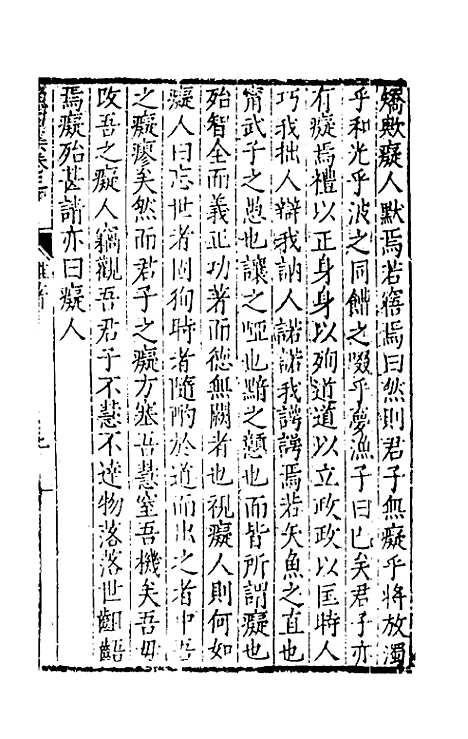 矯歟癡人默焉若瘖焉曰然則君子無癡乎將放濁
乎和光乎波之同餔之啜乎夢漁子曰已矣君子亦
有癡焉禮以正身身以殉道道以立政政以匡時人
巧我拙人辯我訥人諾諾我諤諤焉若矢魚之直也
甯武子之愚也讓之啞也黯之戇也而皆所謂癡也
殆智全而義正功著而德無闕者也視癡人則何如
癡人曰忘世者固狥時者隨酌於道而出之者中吾
之癡瘳矣然而君子之癡方基吾慧窒吾機矣吾毋
改吾之癡人竊觀吾君子不慧不逹物落落世齟齬
焉癡殆甚請亦曰癡人